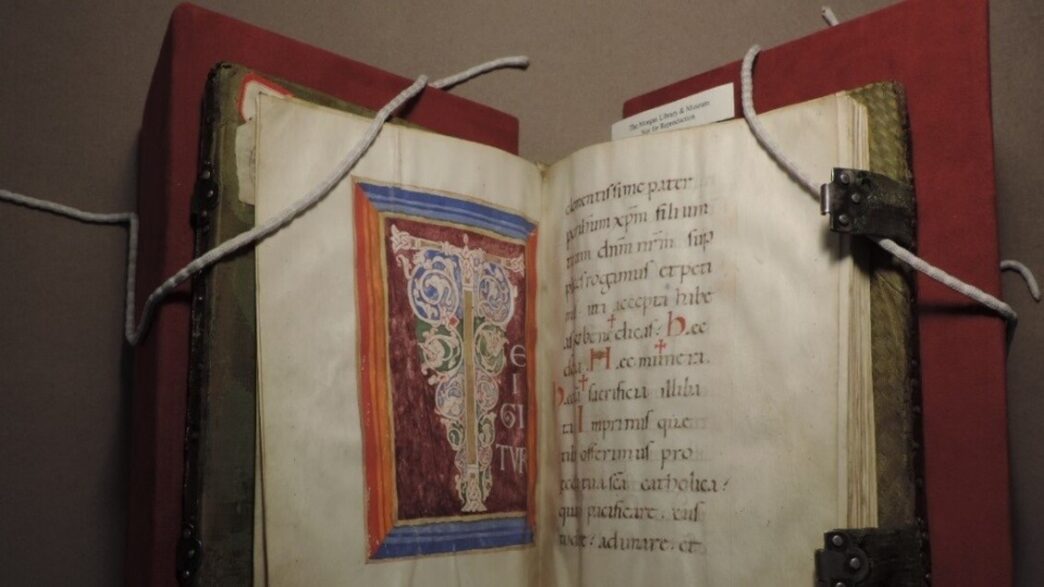 The Morgan Library & Museum
Not for Reproduction
T
E
I
GI
TVR
clementissime pater
xpm filium
dnm nrm sup
rogamus et peti
uti accepta habe
benedicas. Hec
Hec munera.
Hec sacrificia illiba
ta Imprimis que
tibi offerimus pro
ecclatua scā catholica
quā pacificare. cus
adunare. et